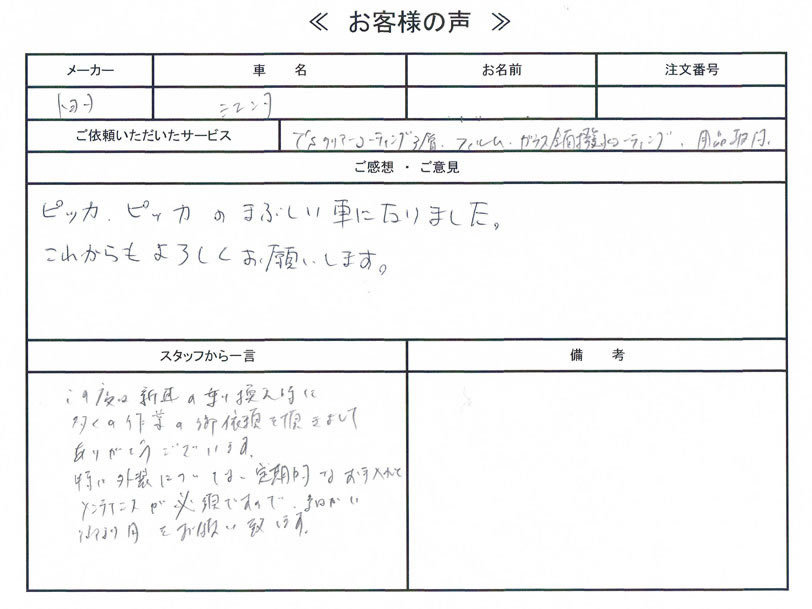 ≪ お客様の声 ≫
メーカー 車 名 お名前 注文番号
トヨタ シエンタ
ご依頼いただいたサービス コーティング3層、フィルム、ガラス全面撥水コーティング、用品取付、
ご感想 ・ ご意見
ピッカ、ピッカ の まぶしい 車に なりました。
これからも よろしく お願いします。
スタッフから一言 備 考
この度は 新車 の 乗り換え時に
多くの 作業 の 御依頼を頂きまして
ありがとうございます。
特に 外装については、定期的な お手入れと
メンテナンスが 必須ですので、
を お願い致します。